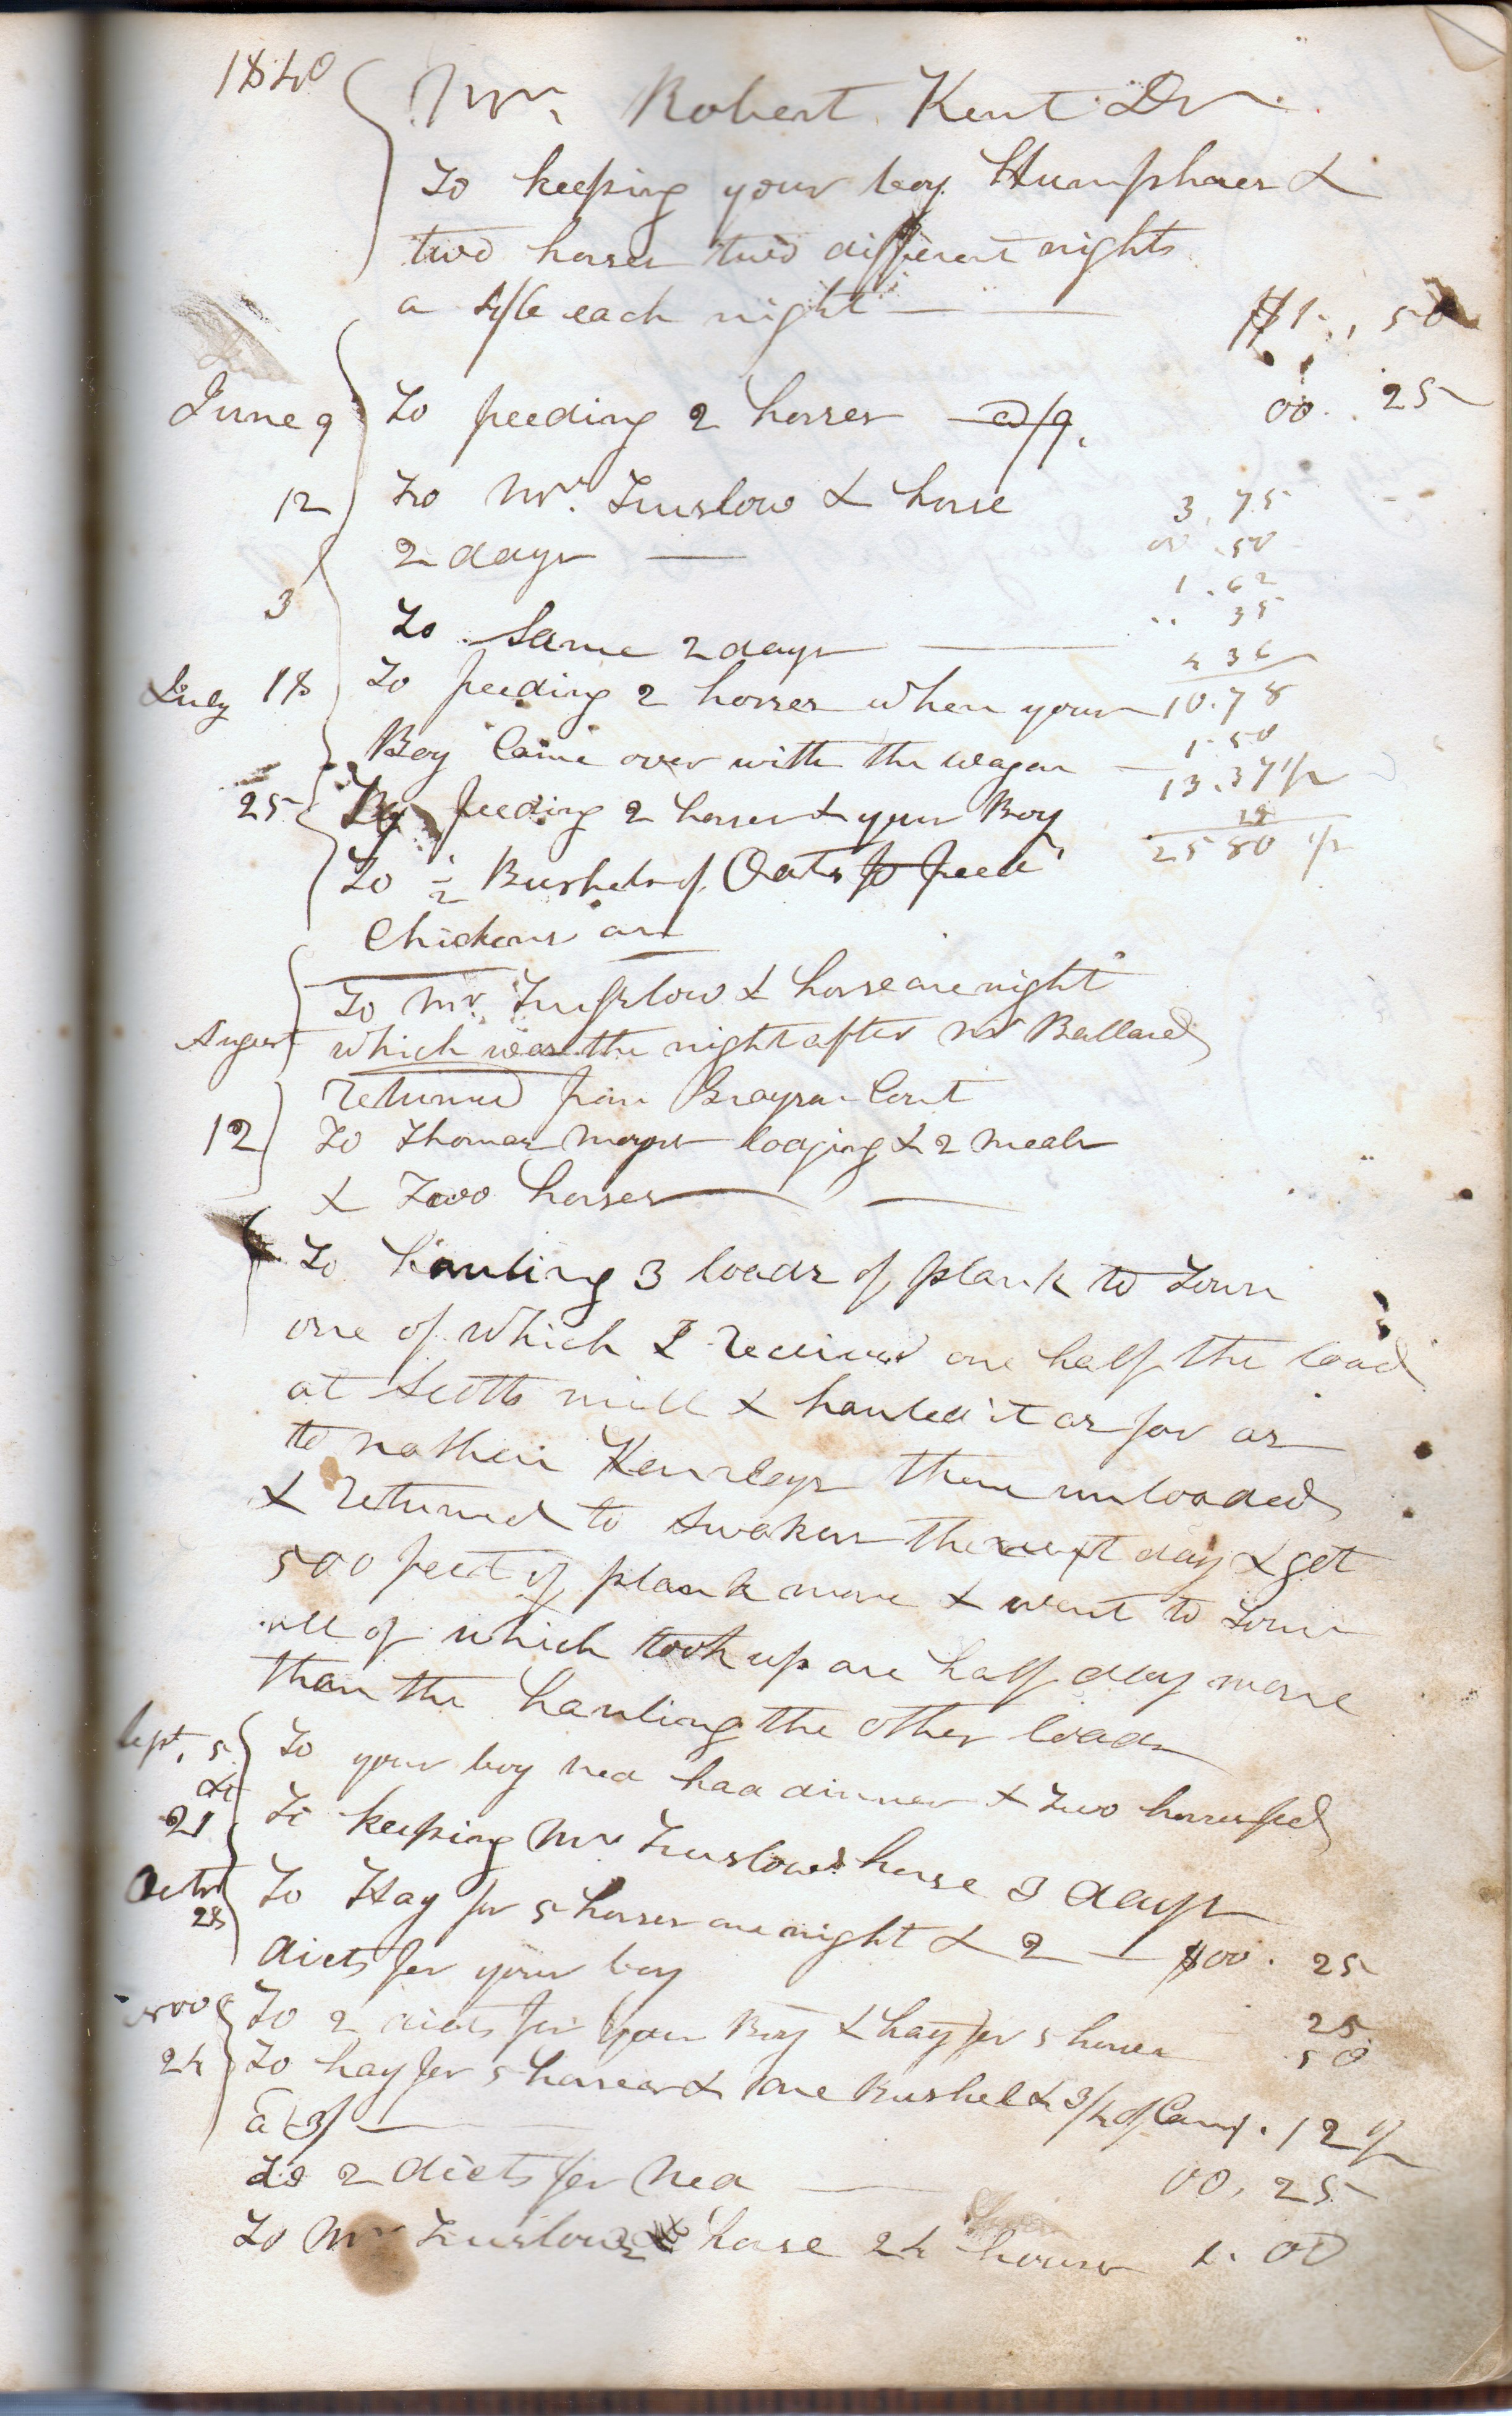 1840
Mr. Robert Kent Dr.
To keeping your boy Humphres &
two horses two different nights
a 4/6 each night — $1.. 50
June 9 To feeding 2 horses — 00. 25
12 To Mr. Tinslow & horse 3.75
2 days — 00.50
1.62
3 To Same 2 days — 35
July 18 To feeding 2 horses when your 10.78
Boy Came over with the wagon — 1.50
13.37 1/2
25 feeding 2 horses & your Boy
25 80 1/2
To 1/2 Bushels of Oats to feed
Chickens on
To Mr. Tinslow & horse one night
August which was the night after Mr Ballard
returned from Court
12 To Thomas lodging & 2 meals
& Two horses —
To hauling 3 loads of plank to Town
one of which I received one half the load
at Scotts mill & hauled it as far as
to then unloaded
& returned to the next day & got
500 feet of plank more & went to Town
all of which took up one half day more
than the hauling the other loads
Sept. 5 To your boy Ned had dinner & two horses fed
21 To keeping Mr Tinslows horse 3 days
Octr 28 To Hay for 5 horses one night & 2 — $00. 25
diets for your boy
Nov To 2 diets for your Boy & hay for 5 horses 25
50
24 To hay for 5 horses & one Bushel & 3/4 of . 12 1/2
a 3/ —
To 2 diets for Ned — 00. 25
To Mr Tinslows horse 24 hours 1. 00